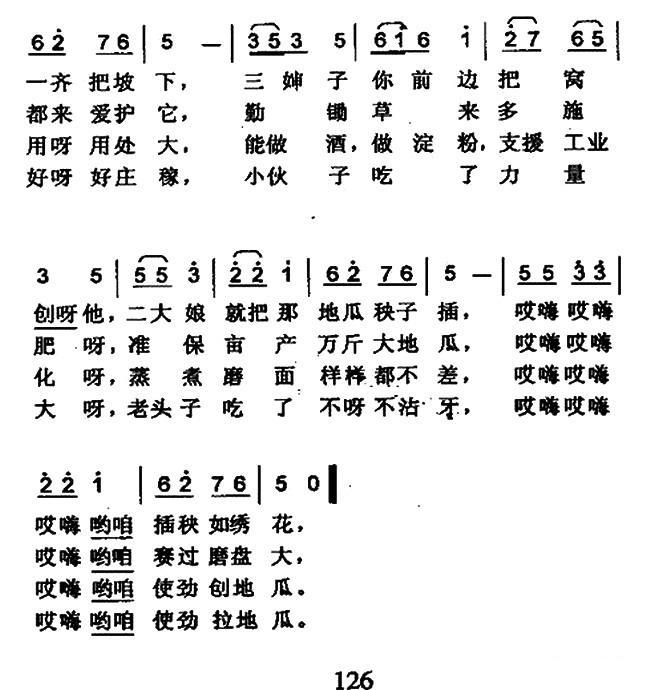 6 2̇ 7 6 | 5 — | 3 5 3 5 | 6 1̇ 6 1̇ | 2̇ 7 6 5 |
一齐把坡下，三婶子你前边把窝
都来爱护它，勤锄草来多施
用呀用处大，能做酒，做淀粉，支援工业
好呀好庄稼，小伙子吃了力量
3 5 | 5 5 3̇ | 2̇ 2̇ 1̇ | 6 2̇ 7 6 | 5 — | 5 5 3̇ 3̇ |
创呀他，二大娘就把那地瓜秧子插，哎嗨哎嗨
肥呀，准保亩产万斤大地瓜，哎嗨哎嗨
化呀，蒸煮磨面样样都不差，哎嗨哎嗨
大呀，老头子吃了不呀不沾牙，哎嗨哎嗨
2̇ 2̇ 1̇ | 6 2̇ 7 6 | 5 0 ‖
哎嗨哟咱插秧如绣花，
哎嗨哟咱赛过磨盘大，
哎嗨哟咱使劲创地瓜。
哎嗨哟咱使劲拉地瓜。
126